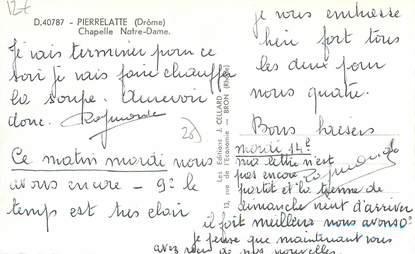 12€
D.40787 - PIERRELATTE (Drôme)
Chapelle Notre-Dame.
Je vais terminer pour ce
soir je vais faire chauffer
la soupe. Aurevoir
donc. Raymonde
Ce matin mardi nous
avons encore - 9° le
temps est tres clair
Les Editions J. CELLARD
13, rue de l'Economie - BRON (Rhône)
je vous embrasse
bien fort tous
les deux pour
nous quatre.
Bons baisers
Raymonde
mardi 14h
ma lettre n'est
pas encore
partot et la tienne de
dimanche vient d'arriver
il fait meilleur nous avons 0°
je pense que maintenant vous
avez de nos nouvelles